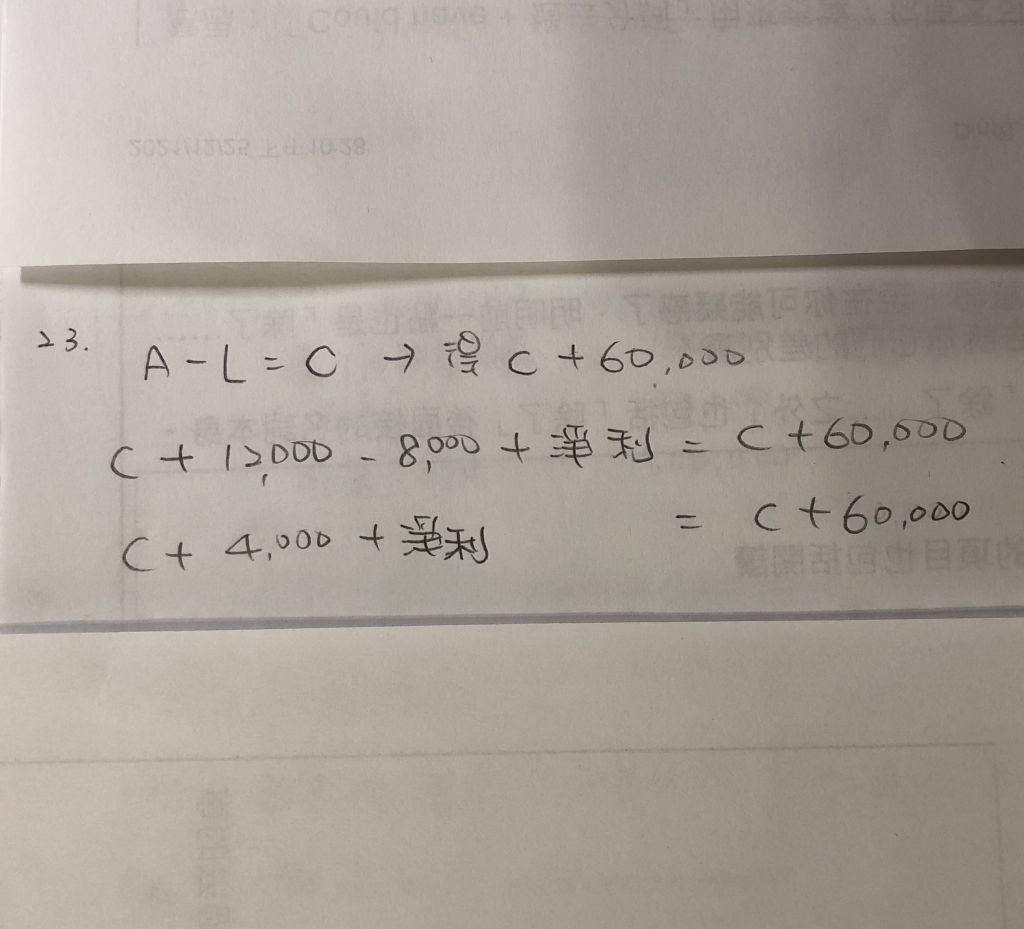 23.
A - L = C → 得 C + 60,000
C + 12,000 - 8,000 + 淨利 = C + 60,000
C + 4,000 + 淨利 = C + 60,000